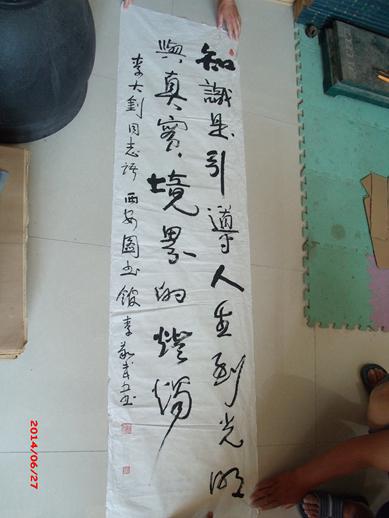 知識是引導人生到光明
與真實境界的燈燭
李大釗同志語 西安圖書館 李
2014/06/27